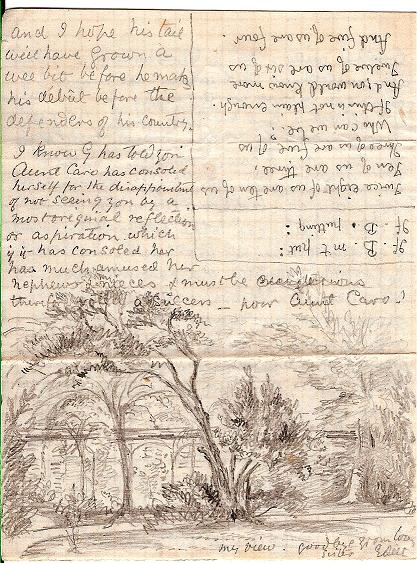 and I hope his tail
will have grown a
wee bit before he makes
his debût before the
defenders of his country.
I know G has told you
Aunt Caro has consoled
herself for the disappointment
of not seeing you by a
most original reflection
or aspiration which
if it has consoled her
has much amused her
nephews & nieces & must be
poor Aunt Caro!
my view. goodbye from
If B. m t put:
If. B. putting:
Twice eight of us are ten of us
Ten of us are three.
Three of us are five of us
Who can we be?
If this is not plain enough
And you would know more
Twelve of us are six of us
And five of us are four.